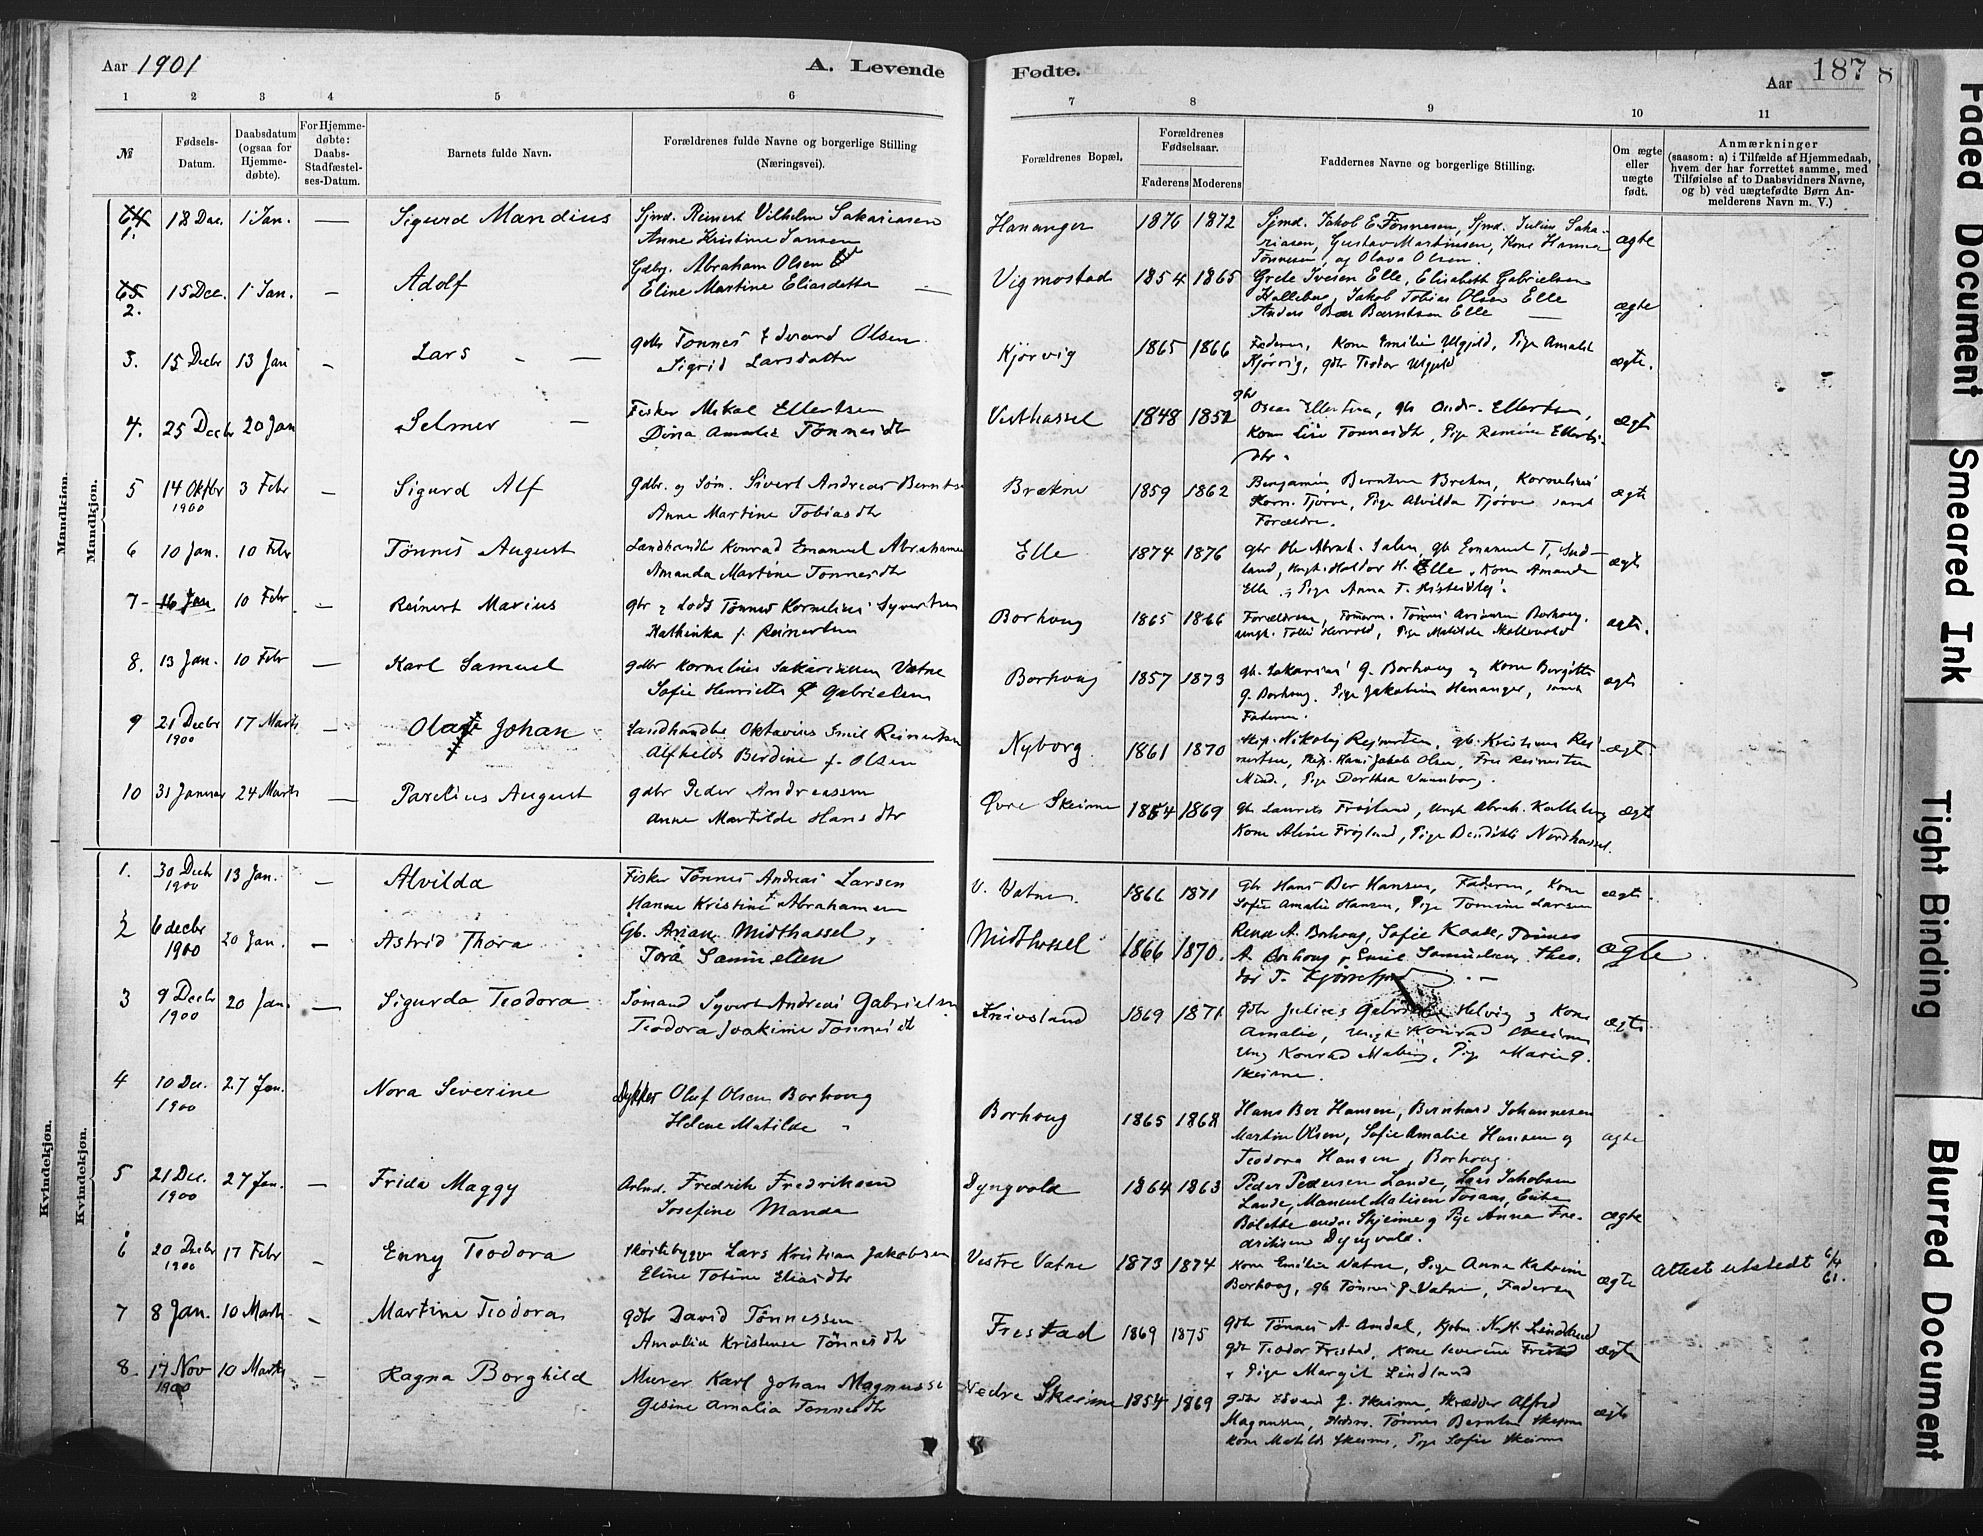 Aar 1901
A. Levende
1 2 3 4 5 6
№
Fødsels-Datum.
Daabsdatum (ogsaa for Hjemme-døbte).
For Hjemme-døbte: Daabs-Stadfæstel-ses-Datum.
Barnets fulde Navn.
Forældrenes fulde Navne og borgerlige Stilling (Næringsvei).
Mandkjøn.
Mandkjøn.
64 1. 18 Dec. 1 Jan. — Sigurd Mandius Sjmd. Reinert Vilhelm Sakariasen
Anne Kristine Jansen
65 2. 15 Dec. 1 Jan. — Adolf Gdbr. Abraham Olsen
Eline Martine Eliasdatter —
3. 15 Decbr 13 Jan — Lars gdbr Tønnes Olsen
Sigrid Larsdatter
4. 25 Decbr 20 Jan Selmer — Fisker Mikal Ellertsen
Dina Amalie Tønnesdtr
5 14 Oktbr 1900 3 Febr — Sigurd Alf gdbr. og Søm. Sivert Andreas Berntsen
Anne Martine Tobiasdtr
6 10 Jan. 10 Febr — Tønnes August Landhandler Konrad Emanuel Abrahamsen
Amanda Martine Tønnesdtr
7 16 Jan 10 Febr — Reinert Marius gbr Lods Tønnes Kornelius Syvertsen
Kathinka f. Reinertsen
8. 13 Jan. 10 Febr — Karl Samuel gdbr Kornelius Sakariassen Vatne
Sofie Henriette Gabrielsen
9 21 Decbr 1900 17 Marts — Olaf Johan Landhandler Oktavius Emil Reinertsen
Alfhilds Berdine f. Olsen
10 31 Januar 24 Marts — Parelius August gdbr Peder Andreassen
Anne Martilde Hansdtr
Kvindekjøn.
Kvindekjøn.
1. 30 Decbr 1900 13 Jan. — Alvilda Fisker Tønnes Andreas Larsen
Hanne Kristine Abrahamsen
2 6 decbr 1900 20 Jan. — Astrid Thora Gb. Arian Midthassel,
Tora Samuelsen
3 9 Decbr 1900 20 Jan. — Sigurda Teodora Sømand Syvert Andreas Gabrielsen
Teodora Joakime Tønnesdt
4 10 Dec. 1900 27 Jan. Nora Severine Dykker Oluf Olsen Borhoug
Helene Matilde
5 21 Dec. 1900 27 Jan. — Frida Maggy Arbmd. Fredrik Fredriksen
Josefine Manda
6 20 Decbr 1900 17 Febr — Enny Teodora Lars Kristian Jakobsen
Eline Totine Eliasdtr
7 8 Jan. 10 Marts — Martine Teodora gdbr David Tønnessen
Amalia Kristense Tønnesdtr
8. 17 Nov 1900 10 Marts — Ragna Borghild Murer Karl Johan Magnussen
Gesine Amalia Tønnesdtr
Fødte.
Aar 187 8
7 8 9 10 11
Forældrenes Bopæl.
Forældrenes Fødselsaar.
Faderens Moderens
Faddernes Navne og borgerlige Stilling.
Om ægte eller uægte født.
Anmærkninger
(saasom: a) i Tilfælde af Hjemmedaab, hvem der har forrettet samme, med Tilføielse af to Daabsvidners Navne, og b) ved uægtefødte Børn An-melderens Navn m. V.)
Hananger 1876 1872 Sjmd. Jakob E Tønnesen, Sjmd. Julius Saka-
riasen, Gustav Martinsen, Kone Hanna ægte
Tønnesen, og Olava Olsen.
Vigmostad 1854 1865 Grete Ivesen Elle, Elisabeth Gabrielsen
Jakob Tobias Olsen Elle ægte
Anders Bær Berntsen Elle —
Kjørvig 1865 1866 Faderen, Kone Emilie Ulgjeld, Pige Amalie
Kjørvig, gdbr Teodor Ulgjeld ægte.
Vesthassel 1848 1852 Oscar Ellertsen, gbr Andr. Ellertsen, ægte
Kone Lise Tønnesdtr, Pige Ellerts-
dtr.
Brækne 1859 1862 Benjamin Berntsen Brekne, Kornelius
Korn. Tjørve, Pige Alvilda Tjørve samt ægte
Forældre.
Elle 1874 1876 gbr Ole Abrah. Salen, gb Emanuel T. Sud-
land, Ungk. Haldor H. Elle, Kone Amanda ægte
Elle, Pige Anna T.
Borhoug 1865 1866 Forældrene, Tønnes Borhoug, ægte.
Borhoug 1857 1873 gb. Sakarias G. Borhoug og Kone Bergitte ægte
G. Borhoug. Pige Jakobine Hananger, samt
Faderen.
Nyborg 1861 1870 Skip. Nikolaj Reinertsen, gb. Kristian Rei- ægte
nertsen, Skip. Hans Jakob Olsen, Fru Reinertsen
Pige Dorthea
Øvre Skeime 1854 1869 gb Laurits Frøjland, Ungk Abrah. Kalleberg ægte
Kone Aline Frøjland, Pige Benedikte Nordhassel.
V. Vatne. 1866 1871 gb Hans Ber Hansen, Faderen, Kone ægte.
Sofie Amalie Hansen, Pige Tomine Larsen
Midthassel 1866 1870. A. Borhoug, Sofie Kaade, Tønnes ægte
A. Borhoug, Emil Samuelsen, Theo-
dor T.
Knivsland 1869 1871 gdbr Julius Gabrielsen Helvig og Kone
Amalie, Ungk Konrad Skeime ægte
Ung Konrad Pige Marie
Skeime.
Borhoug 1865 1868 Hans Ber Hansen, Bernhard Johannesen
Martin Olsen, Sofie Amalie Hansen og ægte
Teodora Hansen, Borhoug.
Dyngvold 1864 1863 Peder Pedersen Lande, Lars Jakobsen
Lande, Manuel Matisen
Bolette Skjeime og Pige Anna Fre- ægte
driksen Dyngvold.
Vestre Vatne 1873 1874 Kone Emilie Vatne, Pige Anna Katrine Attest utstedt 6/4 61.
Borhoug, gb Tønnes J. Vatne, Faderen ægte
Frestad 1869 1875 gdbr Tønnes A. Omdal, N. H. Lindland
gdb Teodor Frestad, Kone Severine Frestad ægte
Pige Margit Lindland
Nedre Skeime 1854 1869 gdbr Edvard J. Skeime, Skrædder Alfred
Magnussen, Tønnes Berntsen Skeime ægte
Kone Matilde Skeime, Pige Sofie Skeime
Faded Document
Smeared Ink
Tight Binding
Blurred Document